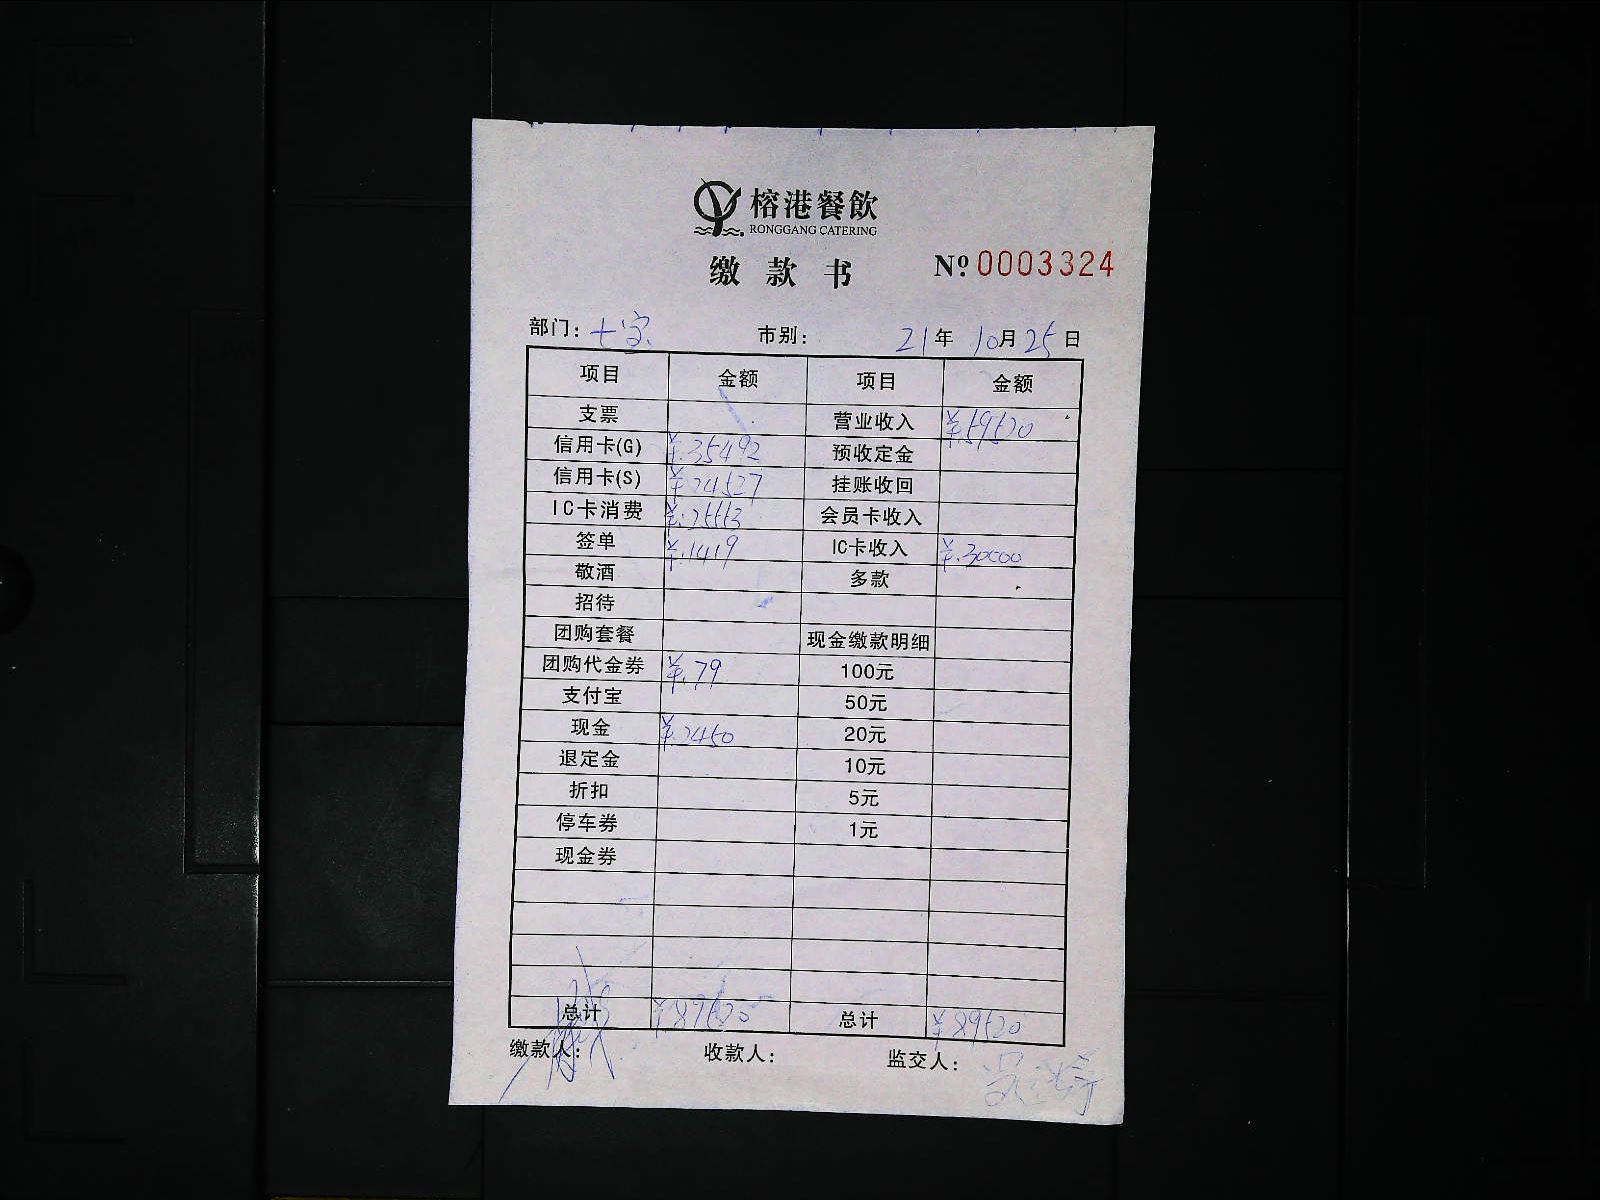 榕港餐飲
RONGGANG CATERING
缴款书 № 0003324
部门: 七宝 市别: 21年 10月 25日
项目 金额 项目 金额
支票 营业收入 ¥59520
信用卡(G) ¥.35492 预收定金
信用卡(S) ¥24527 挂账收回
IC卡消费 ¥.25553 会员卡收入
签单 ¥.1419 IC卡收入 ¥.30000
敬酒 多款
招待
团购套餐 现金缴款明细
团购代金券 ¥.79 100元
支付宝 50元
现金 ¥.2450 20元
退定金 10元
折扣 5元
停车券 1元
现金券
总计 ¥89520 总计 ¥89520
缴款人: 收款人: 监交人: